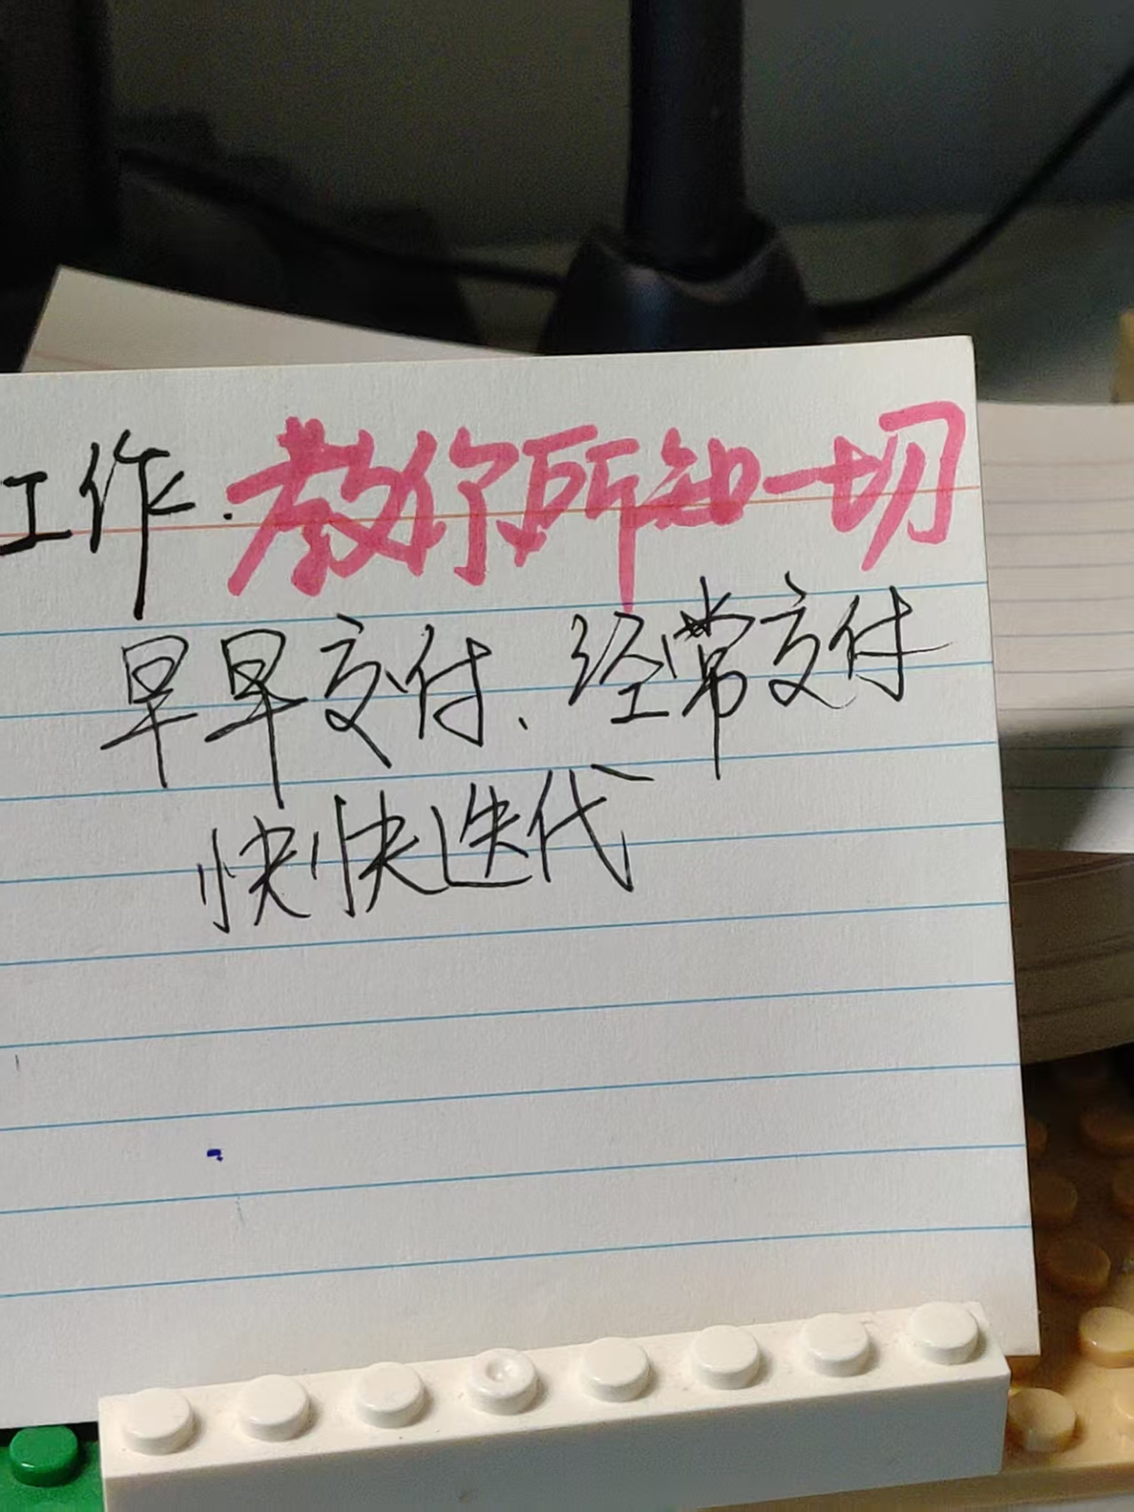 工作.教你所知一切
早早交付、经常交付
快快迭代